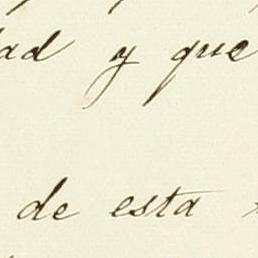 y que
de esta